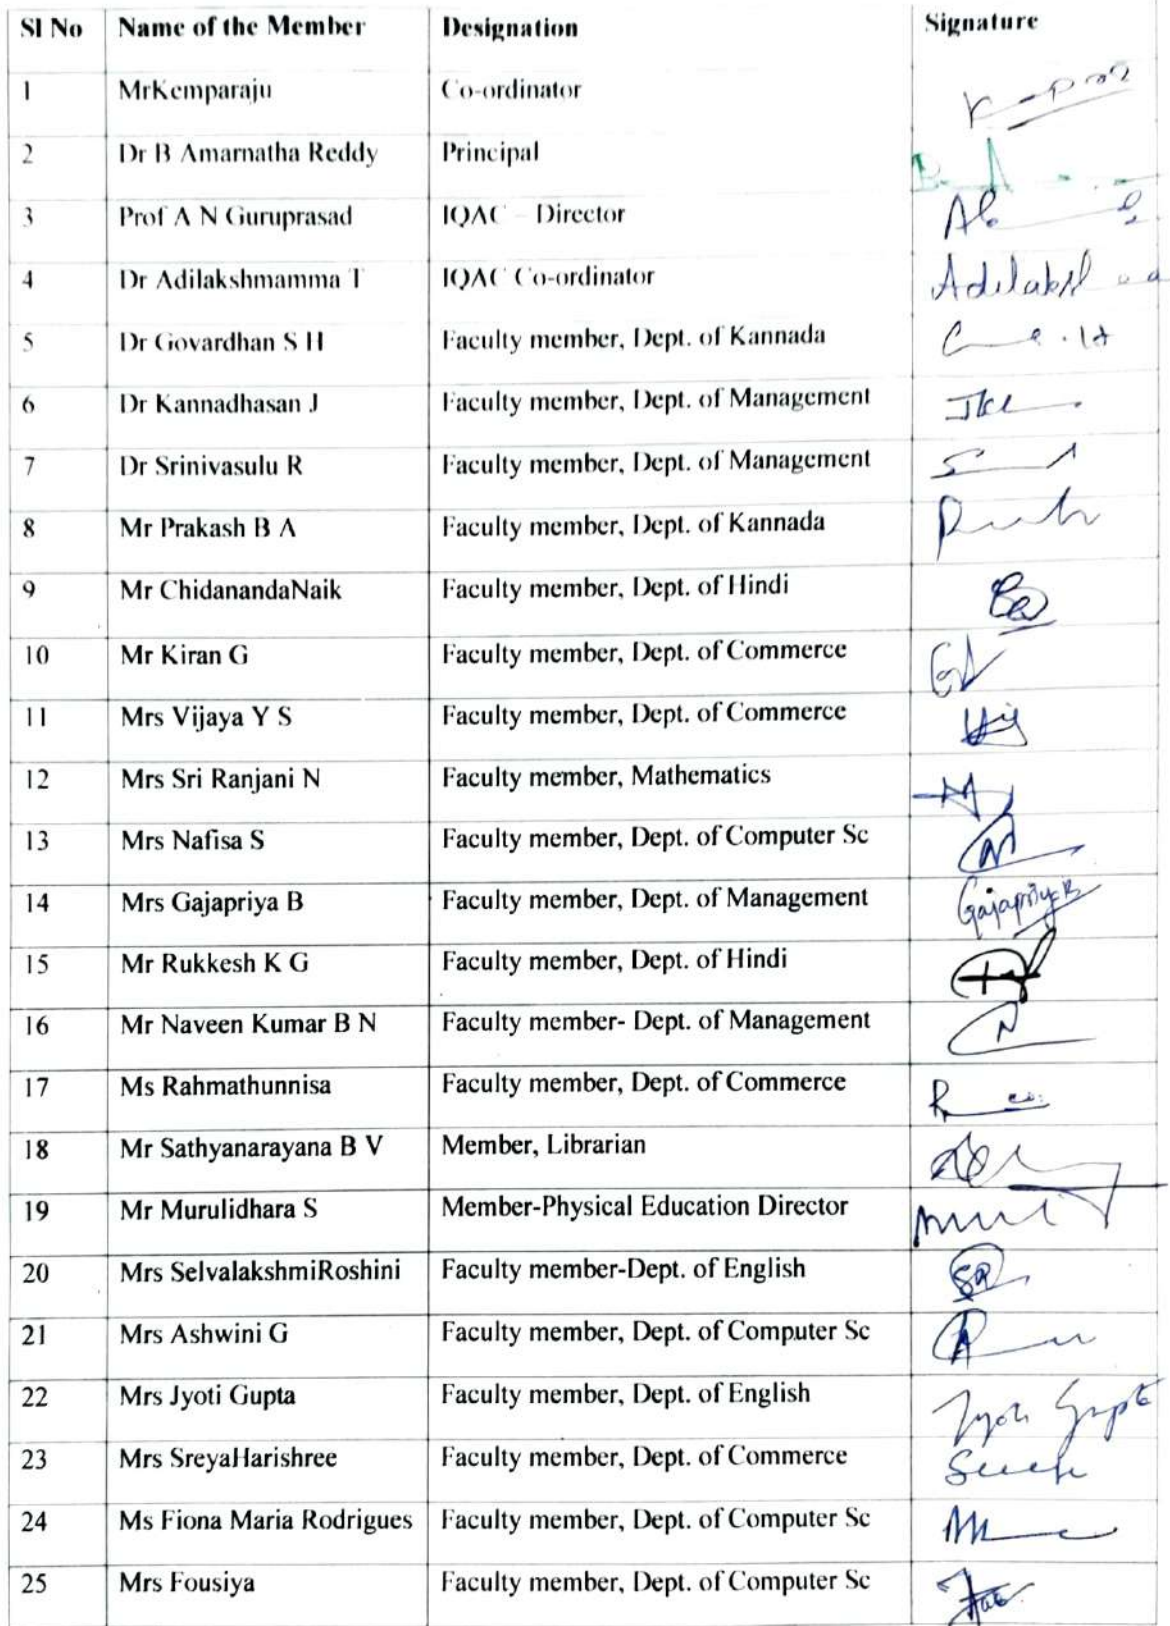 Sl No Name of the Member Designation Signature
1 MrKemparaju Co-ordinator
2 Dr B Amarnatha Reddy Principal
3 Prof A N Guruprasad IQAC - Director
4 Dr Adilakshmamma T IQAC Co-ordinator
5 Dr Govardhan S H Faculty member, Dept. of Kannada
6 Dr Kannadhasan J Faculty member, Dept. of Management
7 Dr Srinivasulu R Faculty member, Dept. of Management
8 Mr Prakash B A Faculty member, Dept. of Kannada
9 Mr ChidanandaNaik Faculty member, Dept. of Hindi
10 Mr Kiran G Faculty member, Dept. of Commerce
11 Mrs Vijaya Y S Faculty member, Dept. of Commerce
12 Mrs Sri Ranjani N Faculty member, Mathematics
13 Mrs Nafisa S Faculty member, Dept. of Computer Sc
14 Mrs Gajapriya B Faculty member, Dept. of Management Gajapriya B
15 Mr Rukkesh K G Faculty member, Dept. of Hindi
16 Mr Naveen Kumar B N Faculty member- Dept. of Management
17 Ms Rahmathunnisa Faculty member, Dept. of Commerce
18 Mr Sathyanarayana B V Member, Librarian
19 Mr Murulidhara S Member-Physical Education Director
20 Mrs SelvalakshmiRoshini Faculty member-Dept. of English
21 Mrs Ashwini G Faculty member, Dept. of Computer Sc
22 Mrs Jyoti Gupta Faculty member, Dept. of English Jyoti Gupta
23 Mrs SreyaHarishree Faculty member, Dept. of Commerce
24 Ms Fiona Maria Rodrigues Faculty member, Dept. of Computer Sc
25 Mrs Fousiya Faculty member, Dept. of Computer Sc